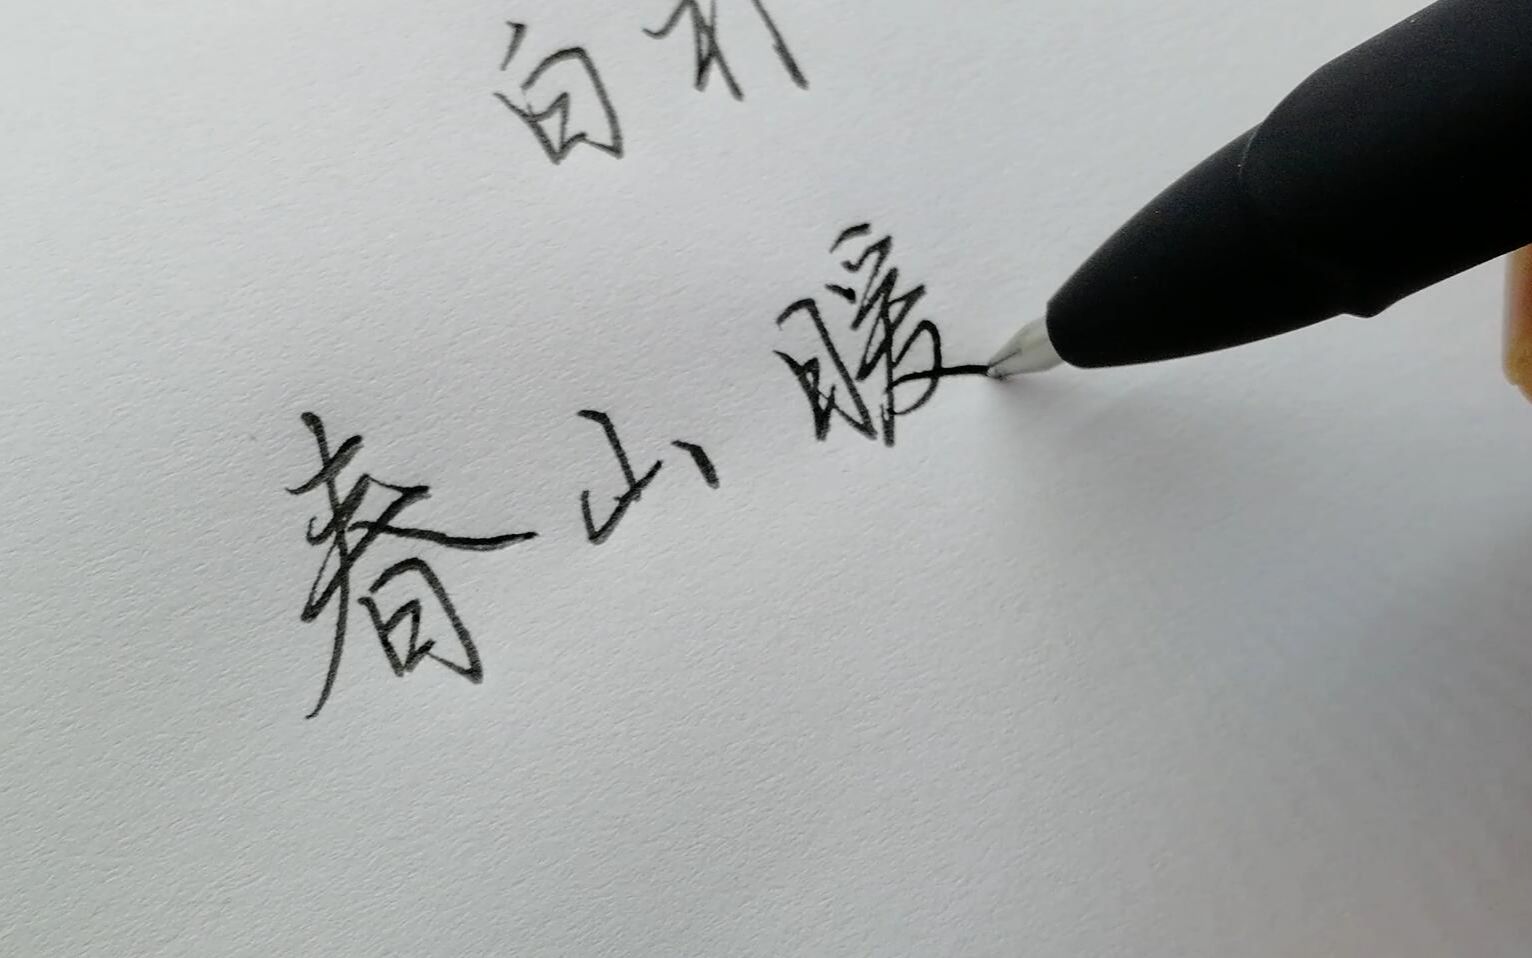 白
春山暖